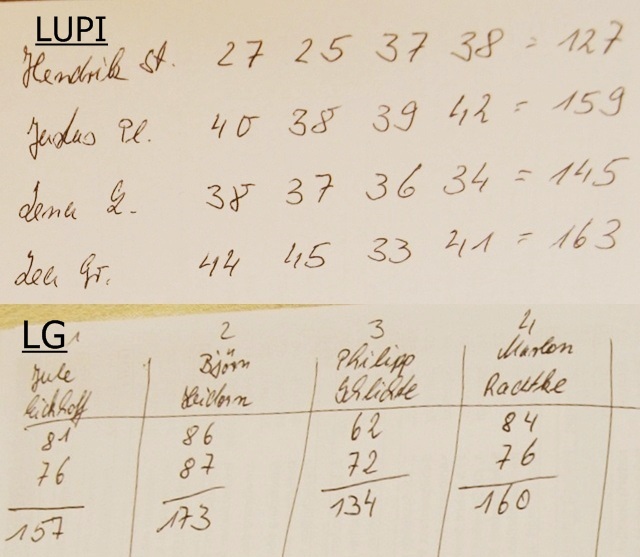 LUPI
Hendrik St. 27 25 37 38 = 127
Pl. 40 38 39 42 = 159
Lena G. 38 37 36 34 = 145
Lea Gr. 44 45 33 41 = 163
LG
1 2 3 4
Jule Björn Philipp Marlon
Eickhoff Schlichte Radtke
81 86 62 84
76 87 72 76
157 173 134 160